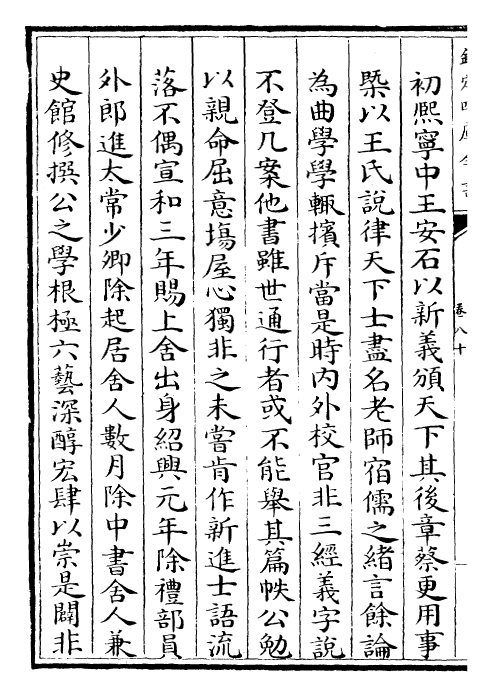 欽定四庫全書
卷八十
初熈寧中王安石以新義頒天下其後章蔡更用事
槩以王氏說律天下士盡名老師宿儒之緒言餘論
為曲學學輒擯斥當是時内外校官非三經義字說
不登几案他書雖世通行者或不能舉其篇帙公勉
以親命屈意塲屋心獨非之未嘗肯作新進士語流
落不偶宣和三年賜上舍出身紹興元年除禮部員
外郎進太常少卿除起居舍人數月除中書舍人兼
史館修撰公之學根極六藝深醇宏肆以崇是闢非